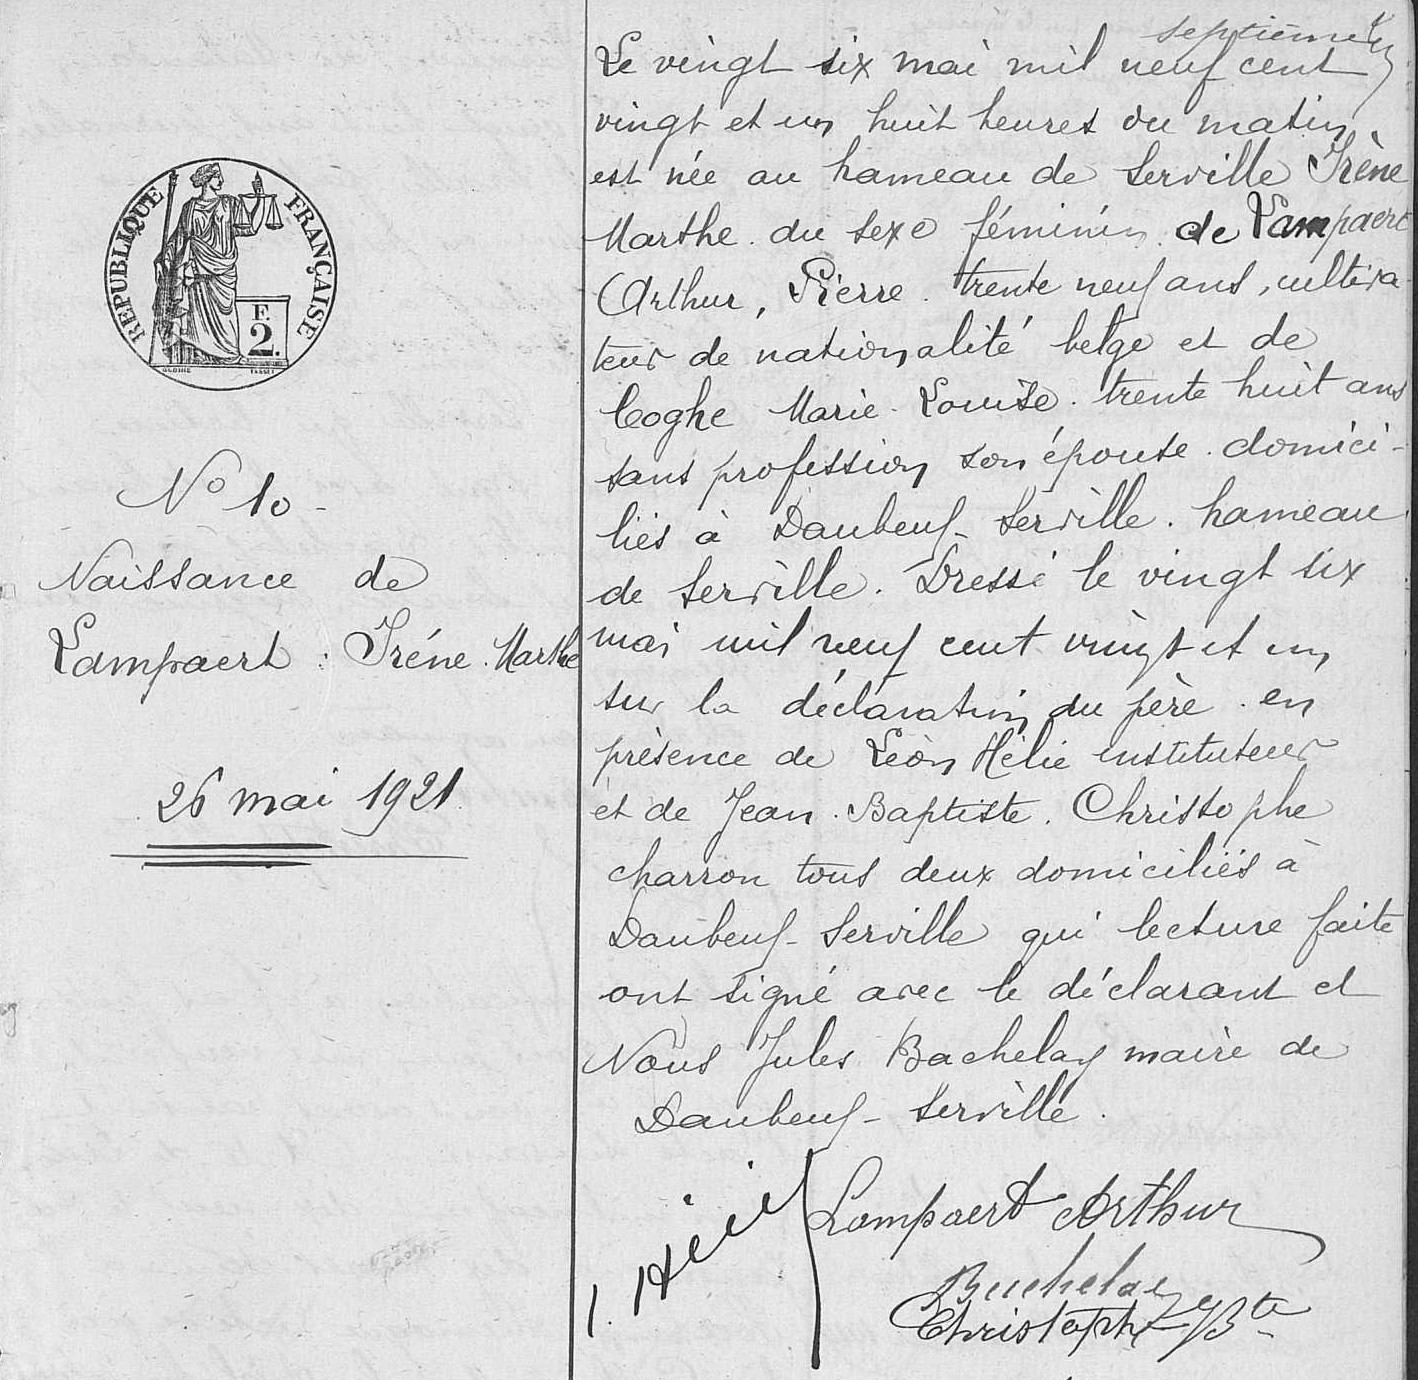 septième
Le vingt six mai mil neuf cent
vingt et un huit heures du matin
est née au hameau de Serville Irène
Marthe. du sexe féminin. de Lampaert
Arthur, Pierre. trente neuf ans, cultiva-
teur de nationalité belge et de
Coghe Marie. Louise. trente huit ans
sans profession son épouse. domici-
liés à Daubeuf-Serville. hameau
de Serville. Dressé le vingt six
mai mil neuf cent vingt et un
sur la déclaration du père. en
présence de Léon Hélie instituteur
et de Jean. Baptiste. Christophe
charron tous deux domiciliés à
Daubeuf-Serville qui lecture faite
ont signé avec le déclarant et
Nous Jules Bachelay maire de
Daubeuf-Serville.
RÉPUBLIQUE FRANÇAISE
F.
2.
No 10-
Naissance de
Lampaert: Iréne. Marthe
26 mai 1921.
Lampaert Arthur
l. Hélie
Bachelay
Christophe JBte